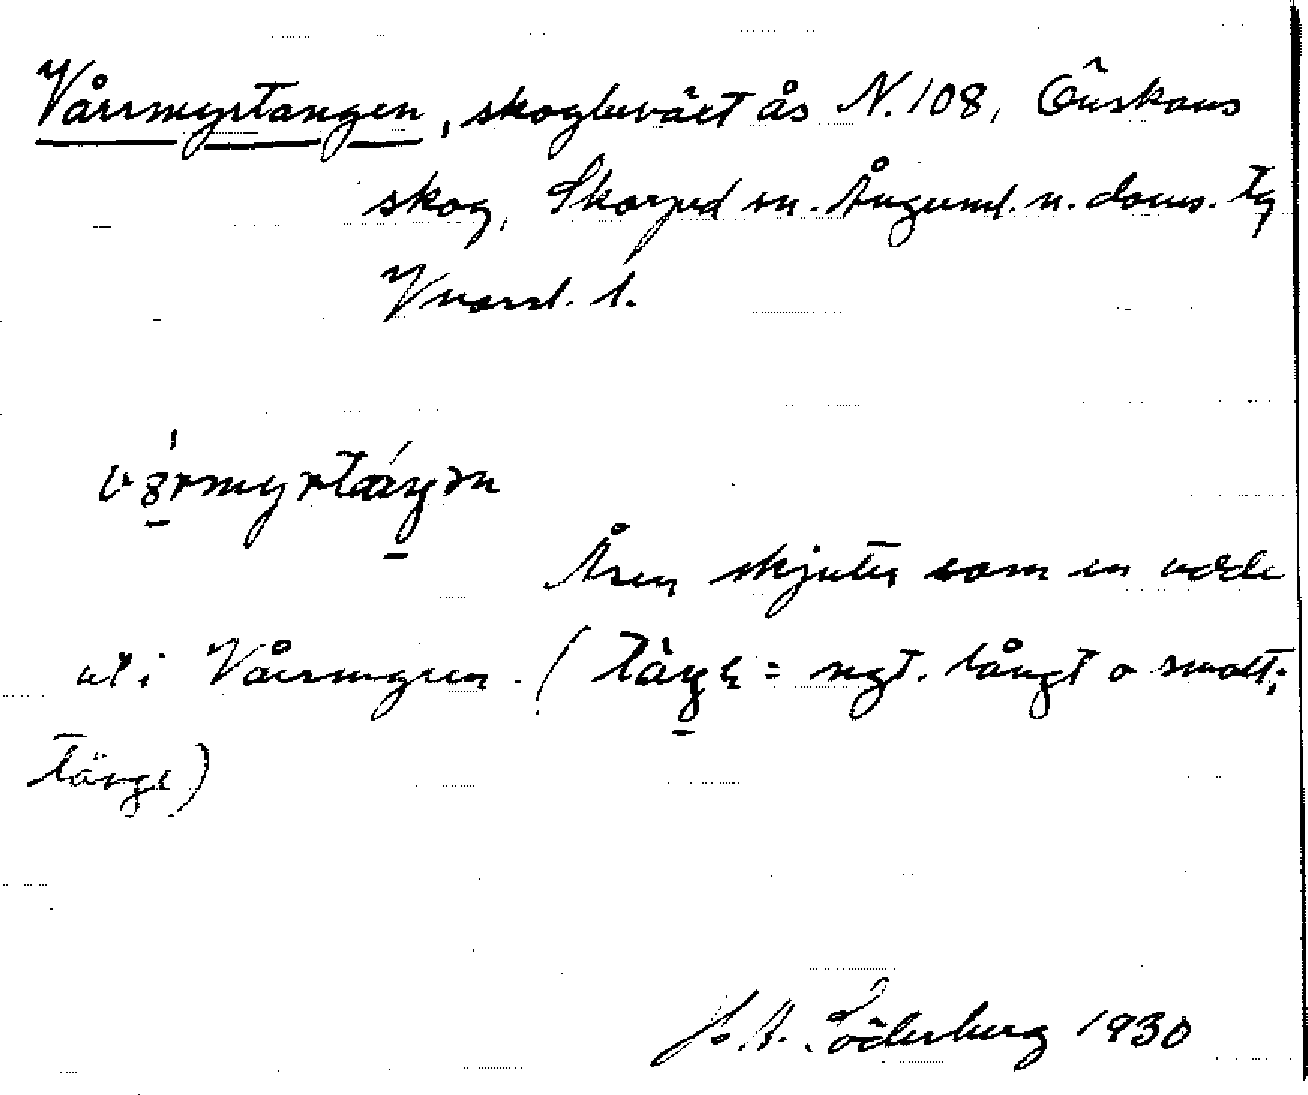 Vårrmyrtangen, skogbeväxt ås N. 108, Önskans
skog, Skorped sn. Ångerml. n. doms. tg
Vnorrl. l.
Åsen skjuter som en udde
ut i Vårrmyren. ( = ngt. långt o smalt;
tånge)
J. A. Söderberg 1930